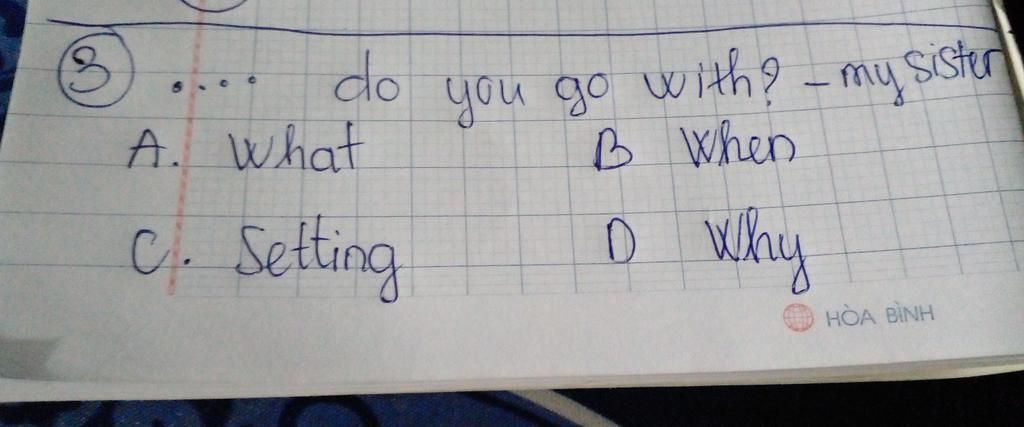 3 .... do you go with? - my sister
A. What B When
C. Setting D Why
HÒA BÌNH